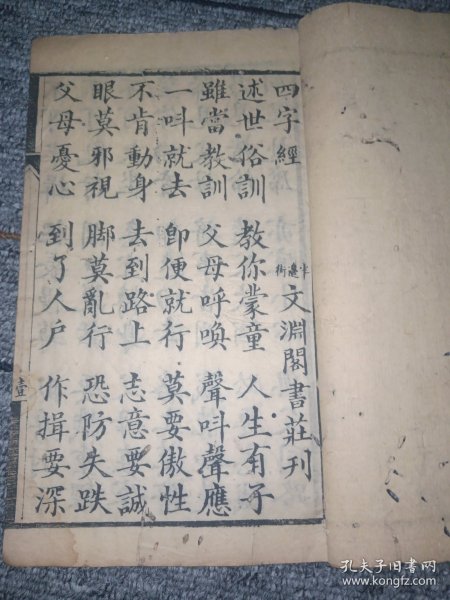 四字經 文淵閣書莊刊
述世俗訓 教你蒙童 人生有子
雖當教訓 父母呼喚 聲呌聲應
一呌就去 即便就行 莫要傲性
不肯動身 去到路上 志意要誠
眼莫邪視 脚莫亂行 恐防失跌
父母憂心 到了人户 作揖要深
壹
孔夫子旧书网
www.kongfz.com